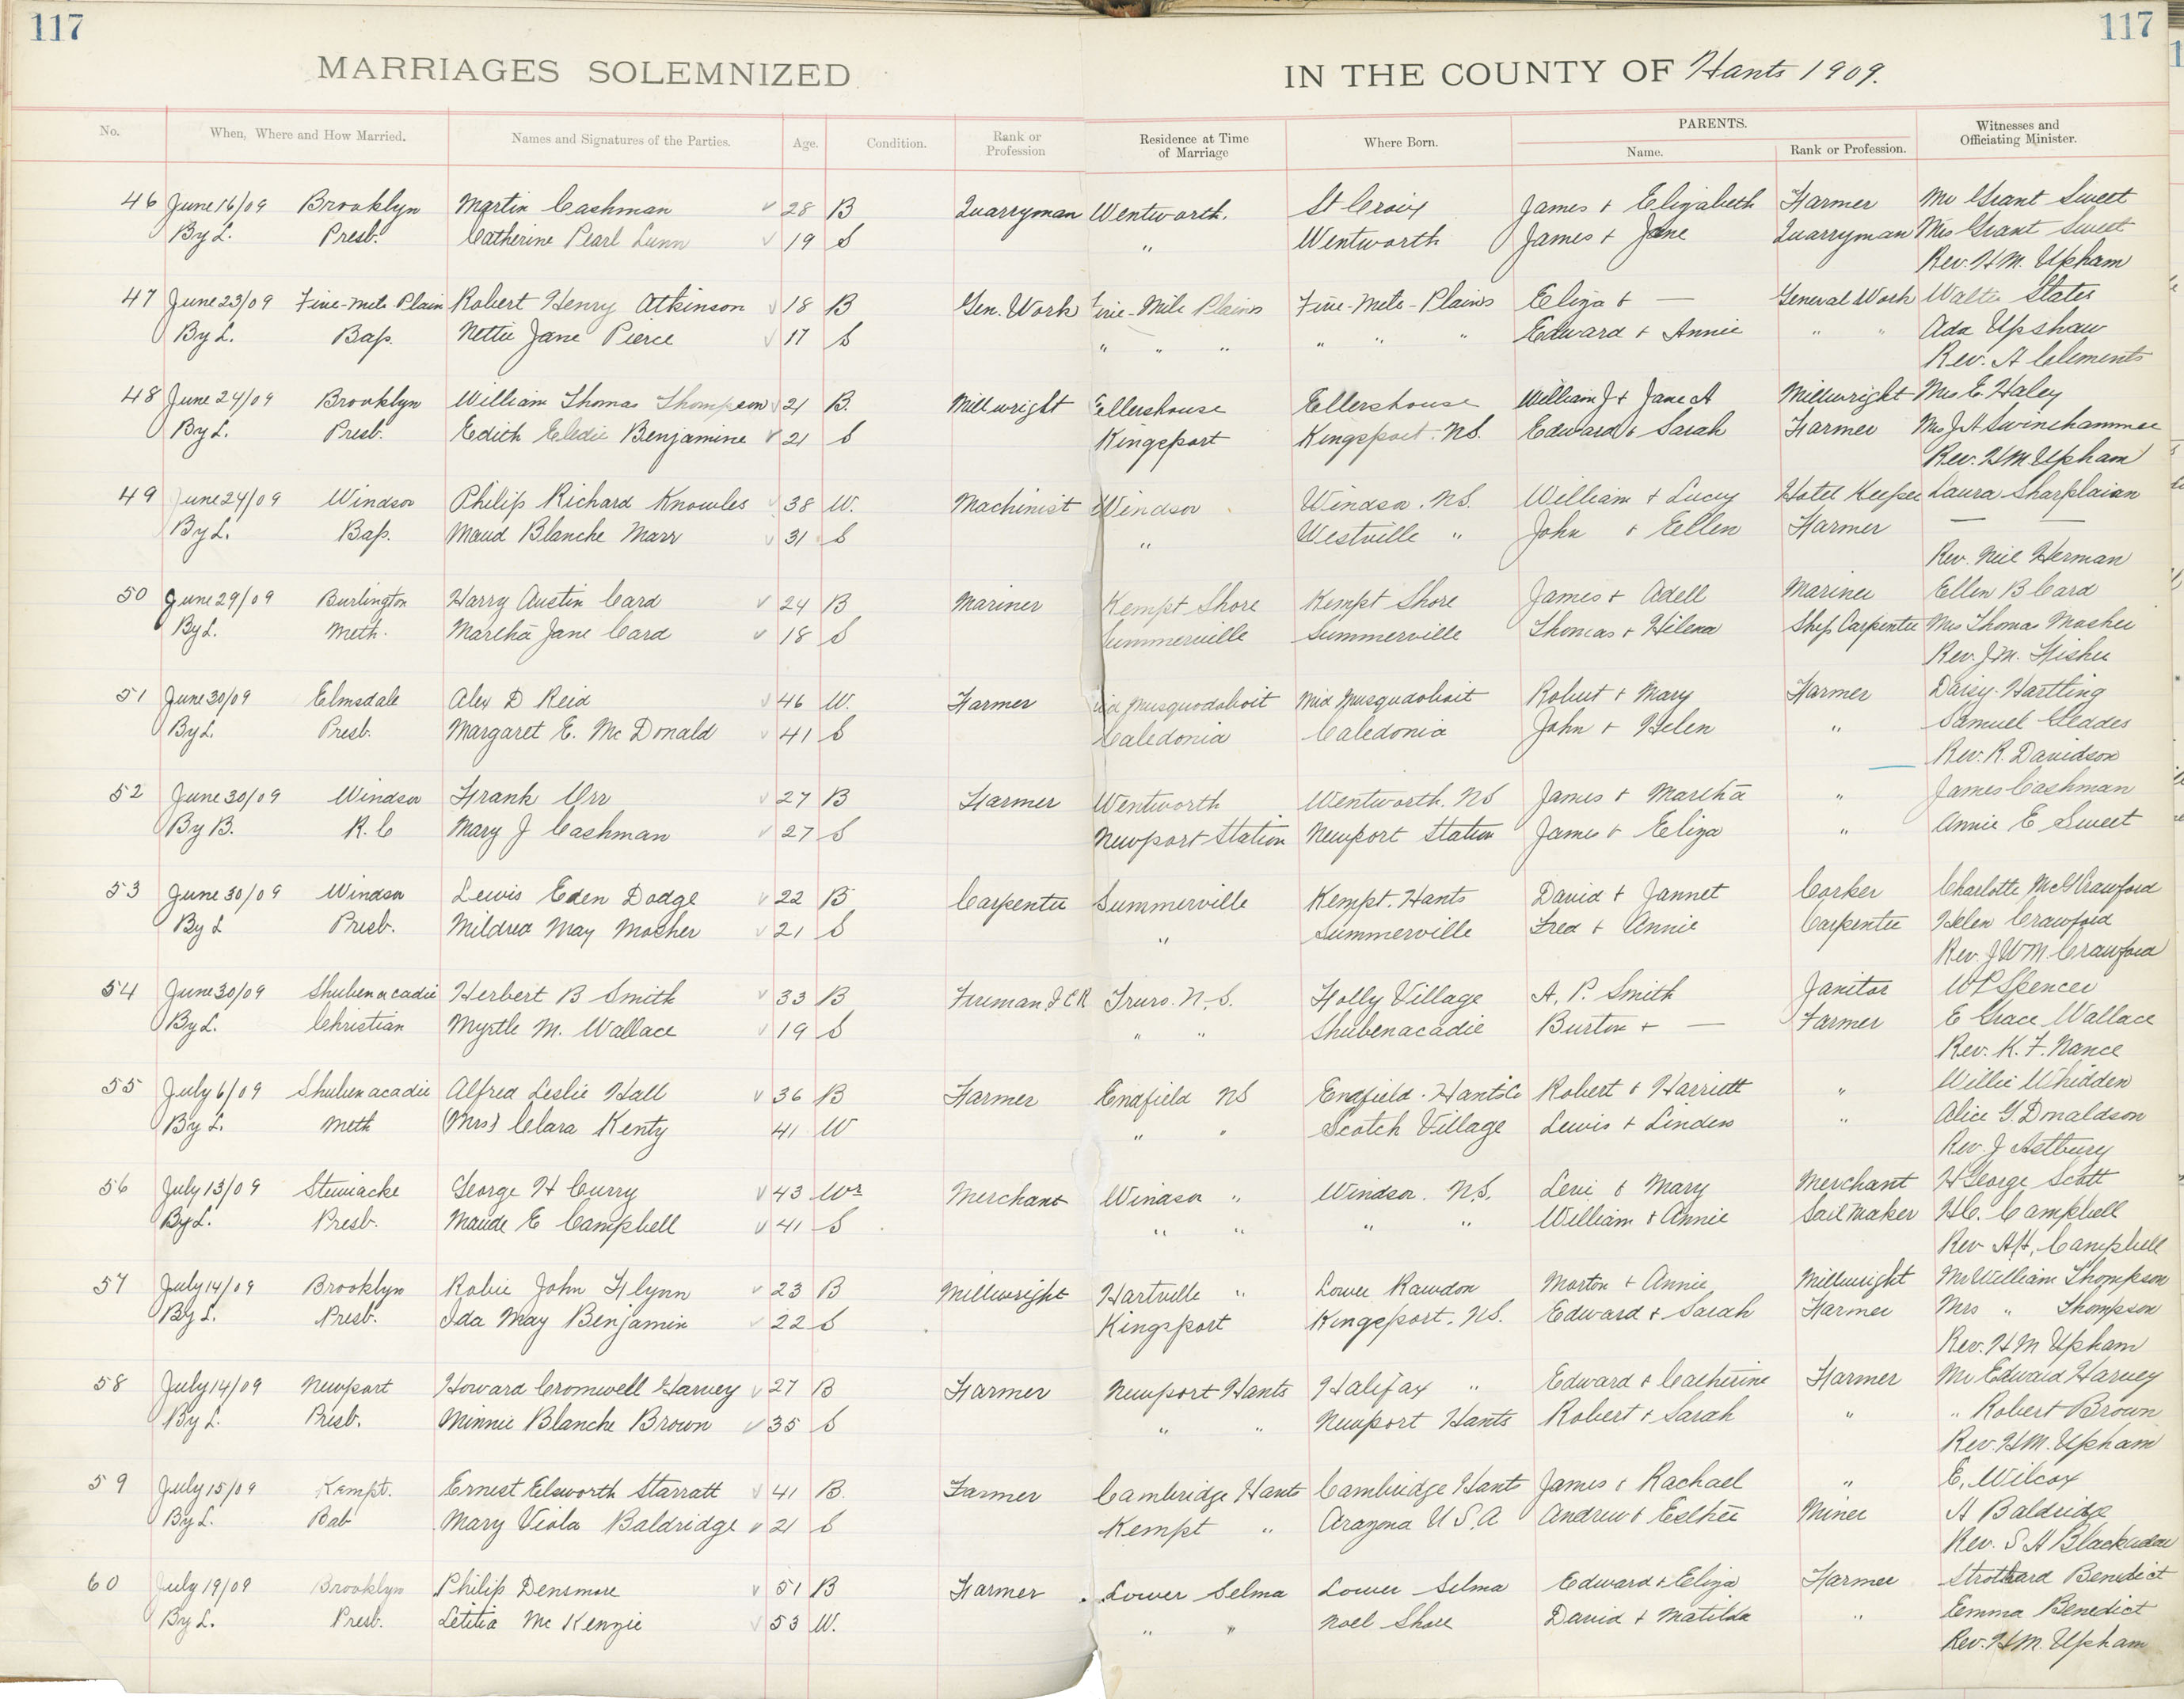 117
117
MARRIAGES SOLEMNIZED IN THE COUNTY OF Hants 1909.
No. When, Where and How Married. Names and Signatures of the Parties. Age. Condition. Rank or Profession Residence at Time of Marriage Where Born. PARENTS. Name. Rank or Profession. Witnesses and Officiating Minister.
46 June 16/09 Brooklyn Martin Cashman 28 B Quarryman Wentworth. St Croix James + Elizabeth Farmer Mr Grant Sweet
By L. Presb. Catherine Pearl Lunn 19 S " Wentworth James + Jane Quarryman Mrs Grant Sweet
Rev. H M. Upham
47 June 23/09 Five-Mile Plain Robert Henry Atkinson 18 B Gen. Work Five-Mile Plains Five-Mile-Plains Eliza + — General Work Walter States
By L. Bap. Nettie Jane Pierce 17 S " " " " " " Edward + Annie " " Ada Upshaw
Rev. A Clements
48 June 24/09 Brooklyn William Thomas Thompson 21 B. Millwright Ellershouse Ellershouse William J + Jane A Millwright Mrs E. Haley
By L. Presb. Edith Eledie Benjamine 21 S Kingsport Kingsport. N.S. Edward + Sarah Farmer Mrs J A Swinehammer
Rev. H M Upham
49 June 24/09 Windsor Philip Richard Knowles 38 W. Machinist Windsor Windsor. N.S. William + Lucy Hotel Keeper Laura Sharplaian
By L. Bap. Maud Blanche Marr 31 S " Westville " John + Ellen Farmer — —
Rev. Neil Herman
50 June 29/09 Burlington Harry Austin Card 24 B Mariner Kempt Shore Kempt Shore James + Adell Mariner Ellen B Card
By L. Meth. Martha Jane Card 18 S Summerville Summerville Thomas + Hilena Ship Carpenter Mrs Thomas Mosher
Rev. J M. Fisher
51 June 30/09 Elmsdale Alex D Reid 46 W. Farmer Mid Musquodoboit Mid Musquodoboit Robert + Mary Farmer Daisy Hartling
By L. Presb. Margaret E. McDonald 41 S Caledonia Caledonia John + Helen " Samuel Geddes
Rev. R. Davidson
52 June 30/09 Windsor Frank Orr 27 B Farmer Wentworth Wentworth. NS James + Martha " James Cashman
By B. R. C Mary J Cashman 27 S Newport Station Newport Station James + Eliza " Annie E Sweet
53 June 30/09 Windsor Lewis Eden Dodge 22 B Carpenter Summerville Kempt. Hants David + Jannet Corker Charlotte McG Crawford
By L Presb. Mildred May Mosher 21 S " Summerville Fred + Annie Carpenter Helen Crawford
Rev. J W M. Crawford
54 June 30/09 Shubenacadie Herbert B Smith 33 B Fireman I.C.R Truro. N.S. Folly Village A. P. Smith Janitor W P Spencer
By L. Christian Myrtle M. Wallace 19 S " " Shubenacadie Burton + — Farmer E Grace Wallace
Rev. K. F. Nance
55 July 6/09 Shubenacadie Alfred Leslie Hall 36 B Farmer Enfield NS Enfield. Hants Co Robert + Harriett " Willie Whidden
By L. Meth (Mrs) Clara Kenty 41 W " " Scotch Village Lewis + Linden " Alice G. Donaldson
Rev. J Astbury
56 July 13/09 Stewiacke George H Curry 43 Wr Merchant Windsor " Windsor. N.S. Levi + Mary Merchant H George Scott
By L. Presb. Maude E Campbell 41 S " " " " William + Annie Sail Maker H C. Campbell
Rev A H. Campbell
57 July 14/09 Brooklyn Robie John Flynn 23 B Millwright Hartville " Lower Rawdon Morton + Annie Millwright Mr William Thompson
By L. Presb. Ida May Benjamin 22 S Kingsport Kingsport. N.S. Edward + Sarah Farmer Mrs " Thompson
Rev. H M Upham
58 July 14/09 Newport Howard Cromwell Harvey 27 B Farmer Newport Hants Halifax " Edward + Catherine Farmer Mr Edward Harvey
By L. Presb. Minnie Blanche Brown 35 S " " Newport Hants Robert + Sarah " " Robert Brown
Rev. H M. Upham
59 July 15/09 Kempt. Ernest Elsworth Starratt 41 B. Farmer Cambridge Hants Cambridge Hant James + Rachael " E. Wilcox
By L. Bab Mary Viola Baldridge 21 S Kempt " Arazona U.S.A Andrew + Esther Miner A Baldridge
Rev. S A Blackadar
60 July 19/09 Brooklyn Philip Densmore 51 B Farmer Lower Selma Lower Selma Edward + Eliza Farmer Strothard Benedict
By L. Presb. Letitia McKenzie 53 W. " " Noel Shore David + Matilda " Emma Benedict
Rev. H M. Upham